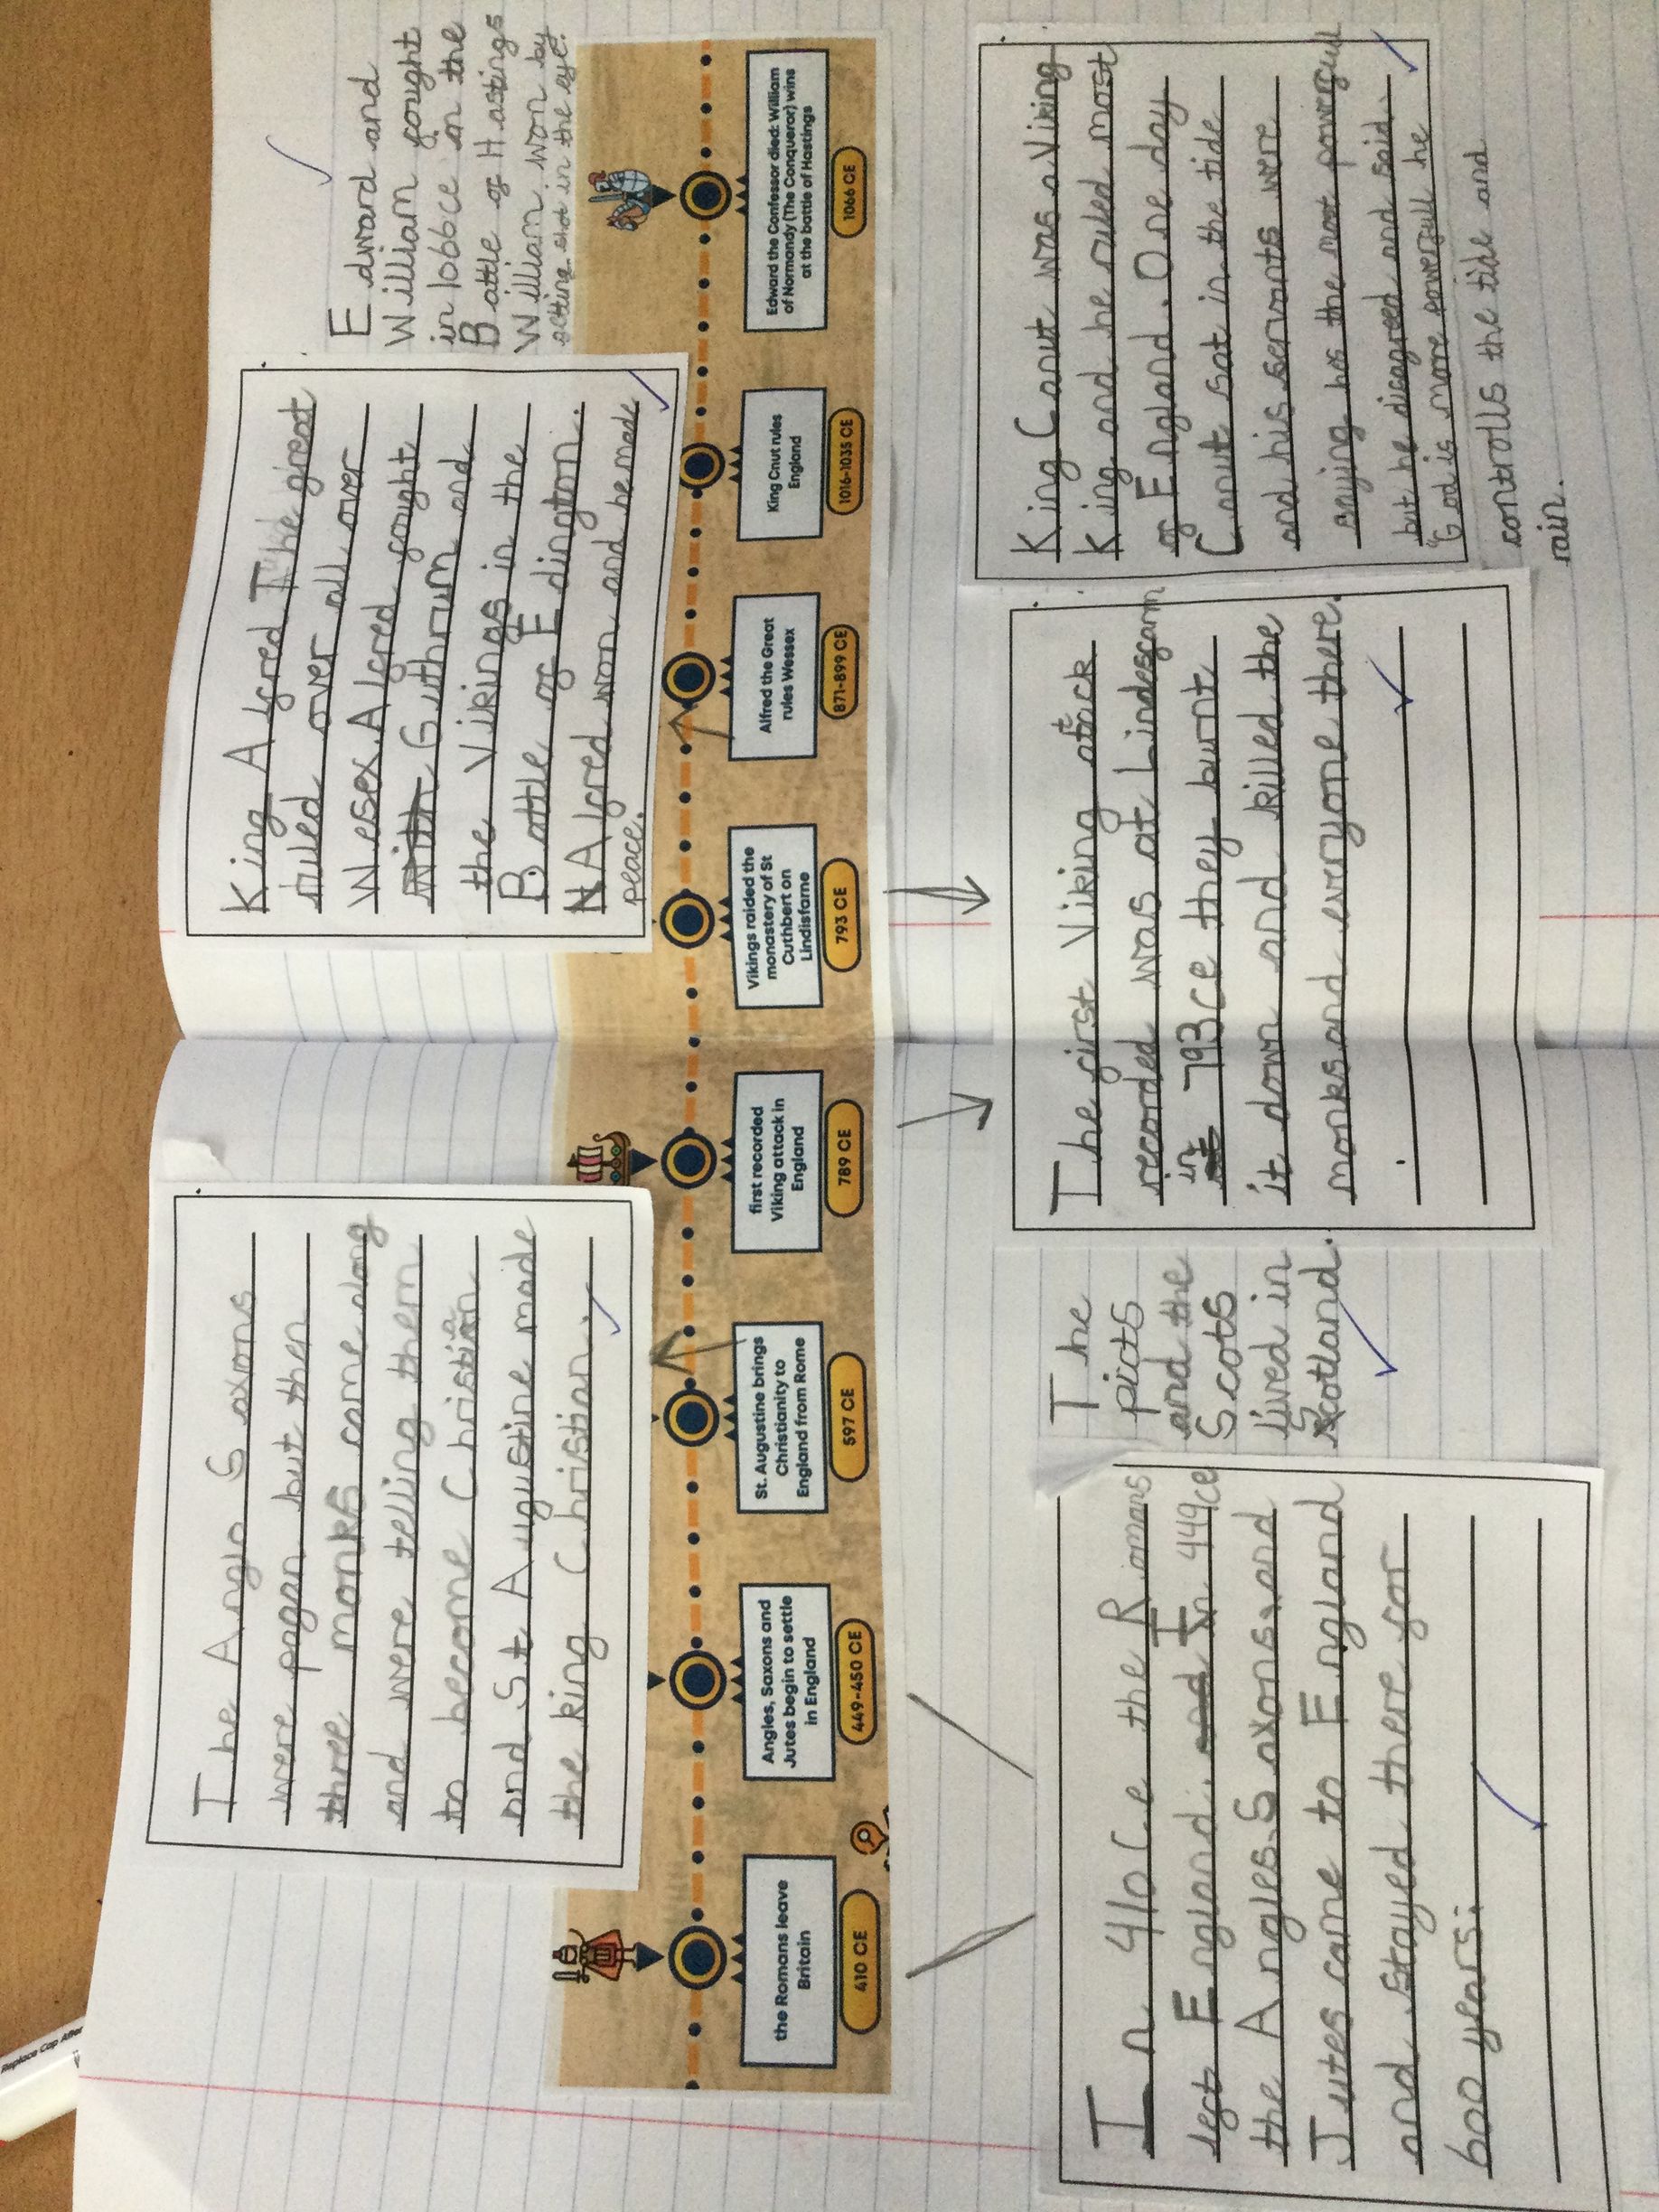 The Anglo Saxons
were pagan but then
three monks came along
and were telling them
to become Christian
and St Augustine made
the king Christian.
King Alfred The great
ruled over all over
Wessex. Alfred fought
with Guthrum and
the Vikings in the
Battle of Edington.
Alfred won and he made
peace.
Edward and
William fought
in 1066ce in the
Battle of Hastings
William won by
shot in the eye.
the Romans leave
Britain
410 CE
Angles, Saxons and
Jutes begin to settle
in England
449-450 CE
St. Augustine brings
Christianity to
England from Rome
597 CE
first recorded
Viking attack in
England
789 CE
Vikings raided the
monastery of St
Cuthbert on
Lindisfarne
793 CE
Alfred the Great
rules Wessex
871-899 CE
King Cnut rules
England
1016-1035 CE
Edward the Confessor died: William
of Normandy (The Conqueror) wins
at the battle of Hastings
1066 CE
In 410Ce the Romans
left England. and In 449ce
the Angles. Saxons. and
Jutes came to England
and stayed there for
600 years.
The
picts
and the
Scots
lived in
Scotland.
The first Viking attack
recorded was at Lindesfarn
in 793ce they burnt
it down and killed the
monks and everyone there.
King Canut was a Viking
King and he ruled most
of England. One day
Canut sat in the tide
and his servants were
saying hes the most powerfull
but he disagreed and said.
"God is more powerfull he
controlls the tide and
rain.
Replace Cap After